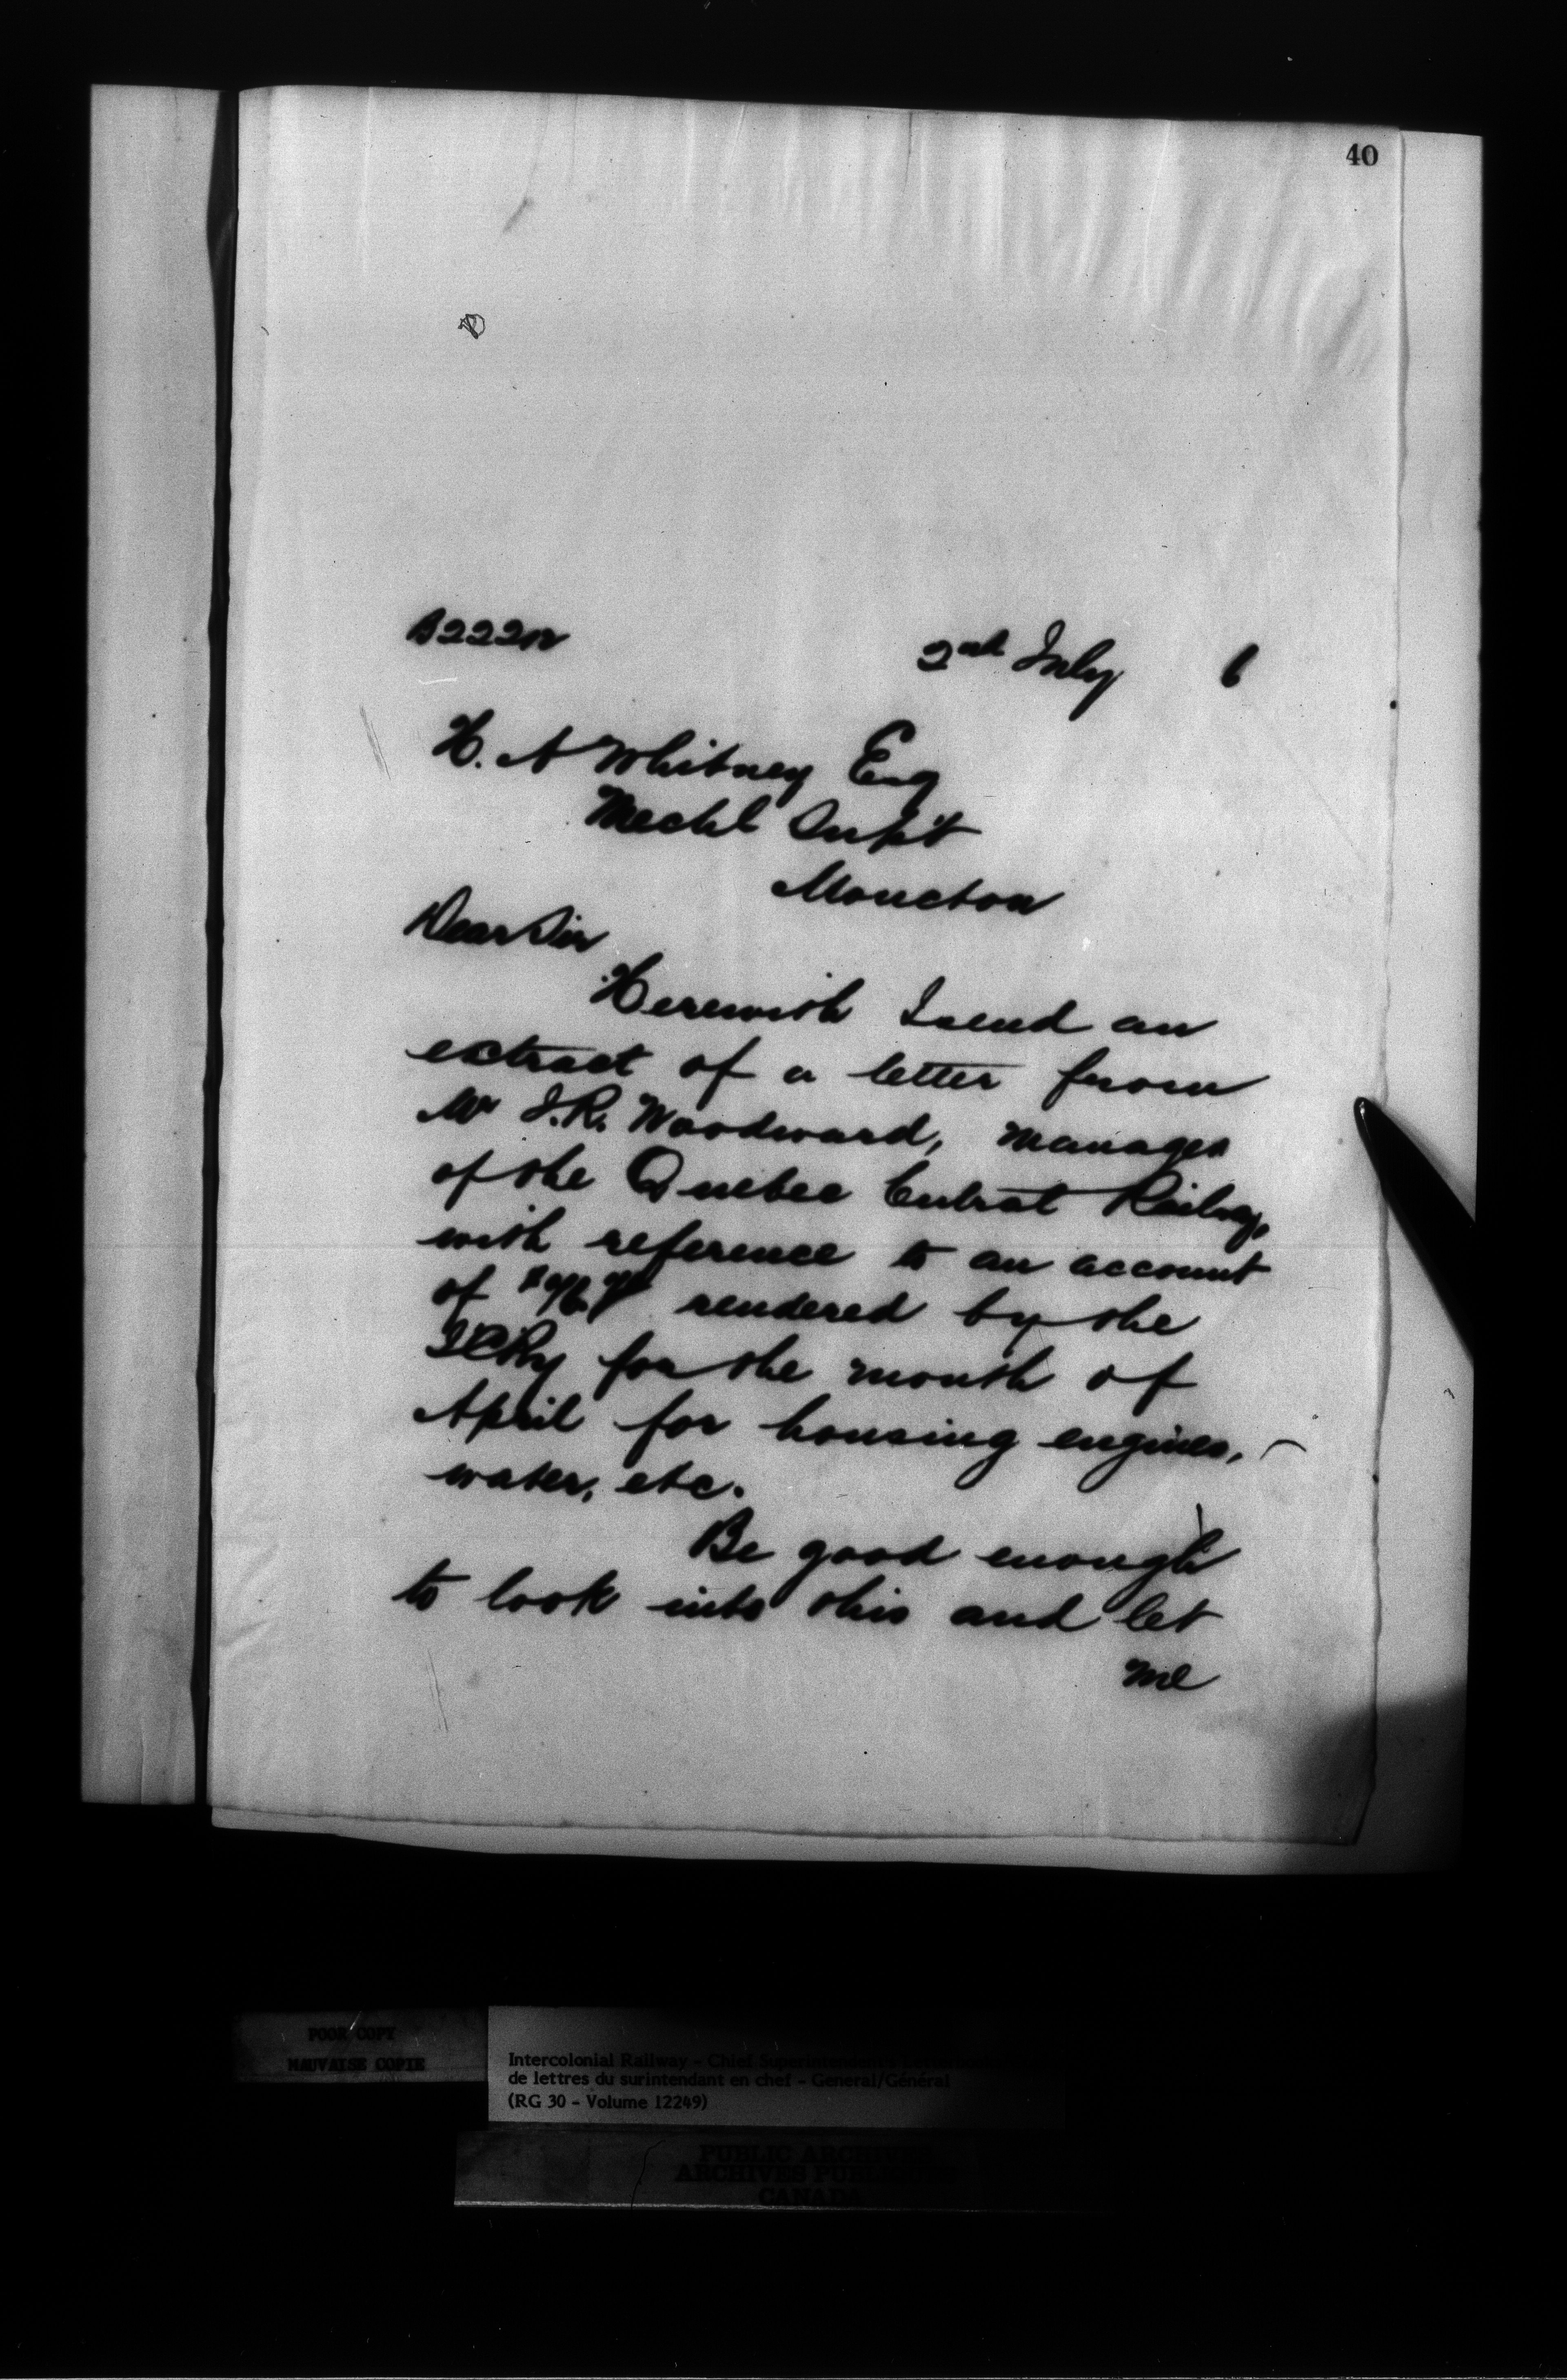 40
2nd July 6
H. A Whitney Esq
Mechl Supt
Moncton
Dear Sir
Herewith I send an
extract of a letter from
Mr J.R. Woodward, manager
of the Quebec Central Railway,
with reference to an account
of rendered by the
ICRy for the month of
April for housing engines,
water, etc.
Be good enough
to look into this and let
me
POOR COPY
MAUVAISE COPIE
Intercolonial Railway - Chief Superintendent's
de lettres du surintendant en chef - General/Général
(RG 30 - Volume 12249)
PUBLIC ARCHIVES
ARCHIVES PUBLIQUES
CANADA